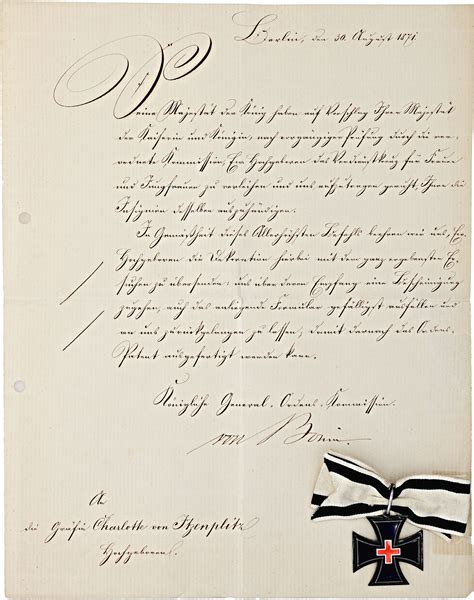 Berlin, den 30. August 1871
Seine Majestät der König haben auf Vorschlag Ihrer Majestät
der Kaiserin und Königin, nach vorgängiger Prüfung durch die ver-
ordnete Kommission, Ew. Hochgeboren das Verdienstkreuz für Frauen
und Jungfrauen zu verleihen und uns aufzutragen geruht, Ihnen die
Insignien desselben auszuhändigen.
In Gemäßheit dieses Allerhöchsten Befehls beehren wir uns, Ew.
Hochgeboren die Dekoration hierbei mit dem ganz ergebensten Er-
suchen zu übersenden, uns über deren Empfang eine Bescheinigung
zugehen, auch das anliegende Formular gefälligst ausfüllen und
an uns zurückgelangen zu lassen, damit danach das Ordens-
Patent ausgefertigt werden kann.
Königliche General-Ordens-Kommission.
von Bonin.
An
die Gräfin Charlotte von Itzenplitz
Hochgeboren.